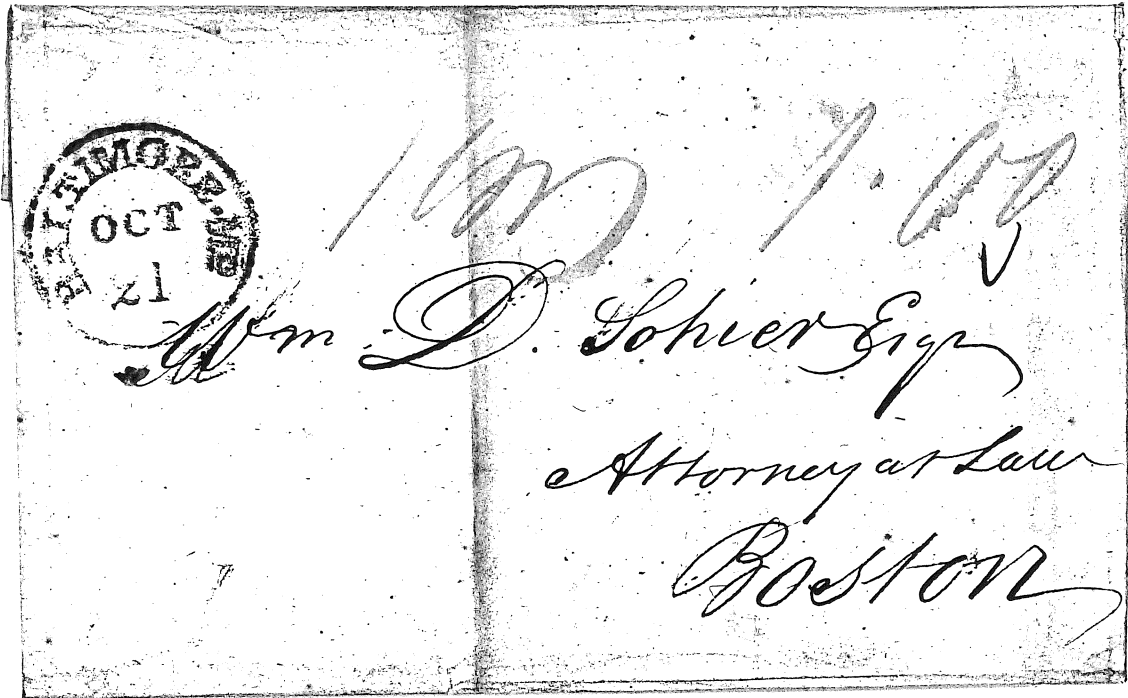 BALTIMORE. MD
OCT
21
Wm. D. Sohier Esqr
Attorney at Law
Boston